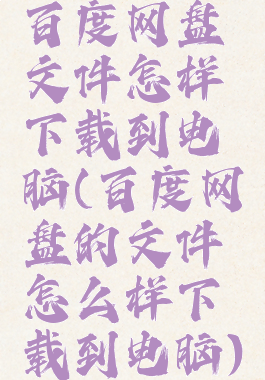 百度网盘
文件怎样
下载到电
脑(百度网
盘的文件
怎么样下
载到电脑)